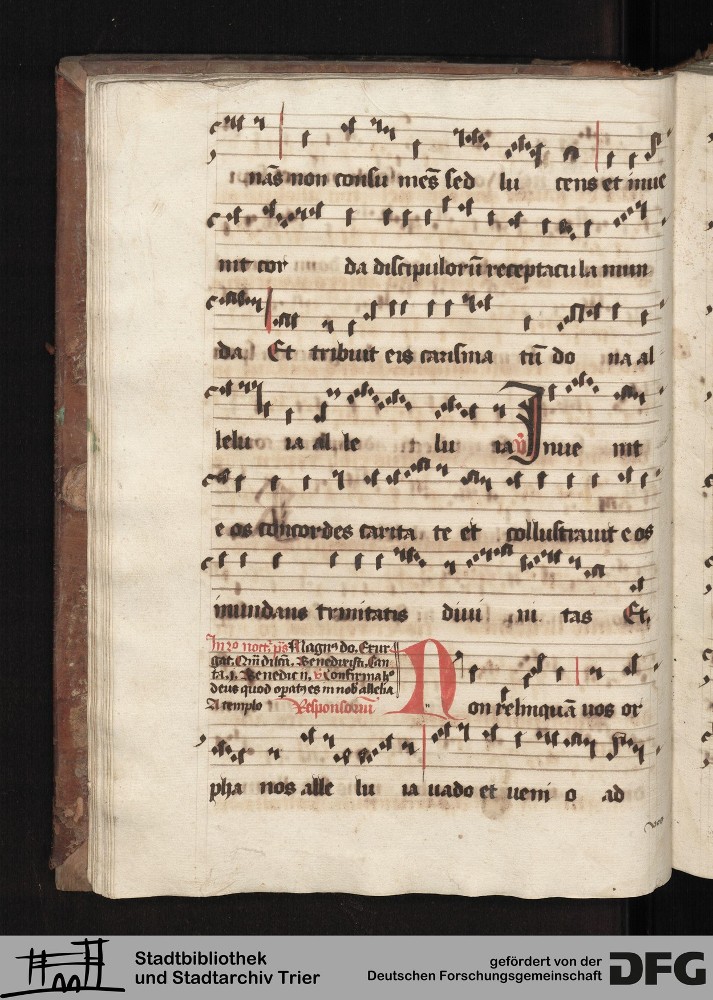 nās non consu mēs sed lu cens et inue
nit cor da discipulorū receptacula mun
da Et tribuit eis carisma tū do na al
lelu ia al le lu ia v Inue nit
e os concordes carita te et collustrauit e os
inundans trinitatis diui ni tas Et
In 2o noct. ps Magn9 do. Exur
gat. Benedixisti. Can
ta. 1. Benedic ii. v Confirma h9
deus quod opat9 es in nob alleluia
A templo Responsoriū
Non relinquā uos or
pha nos alle lu ia uado et ueni o ad
Stadtbibliothek
und Stadtarchiv Trier
gefördert von der
Deutschen Forschungsgemeinschaft
DFG